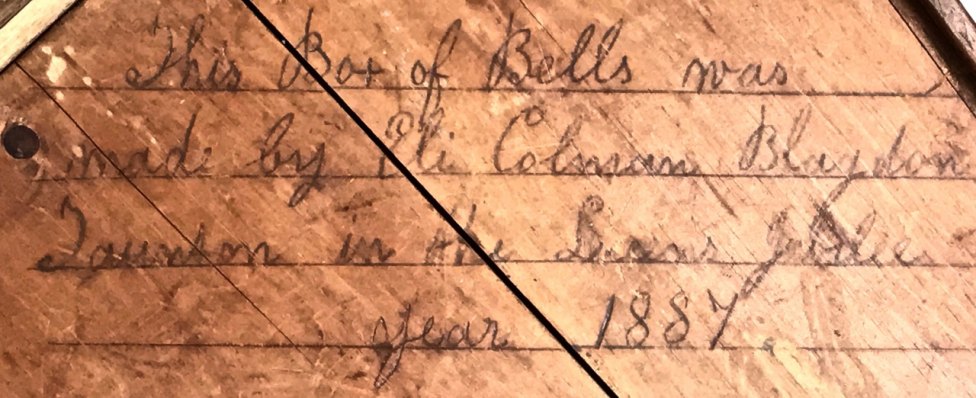 This Box of Bells was
made by Eli Colman Blagdon
Taunton in the Queens Jubilee
year 1887.